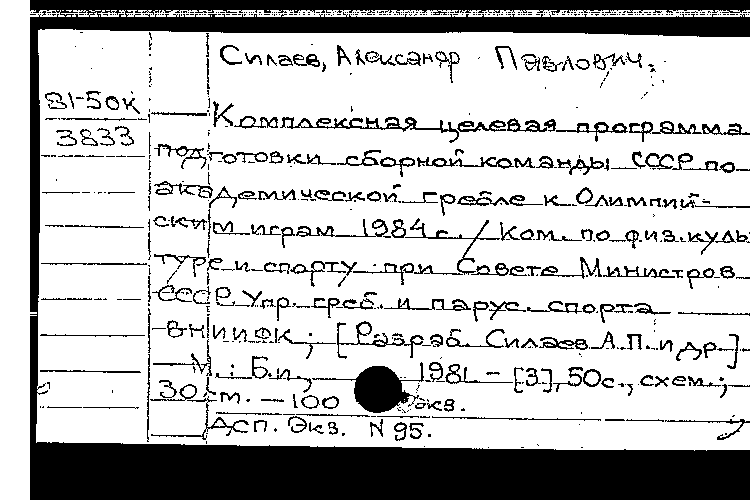 Силаев, Александр Павлович.
81-50к
3833
Комплексная целевая программа
подготовки сборной команды СССР по
академической гребле к Олимпий-
ским играм 1984 г. / Ком. по физ. куль
туре и спорту при Совете Министров
СССР. Упр. греб. и парус. спорта
ВНИИФК ; [Разраб. Силаев А.П. и др.]
М. : Б.и., 1981. - [3], 50 с., схем. ;
30 см. - 100 экз.
Дсп. Экз. N 95.